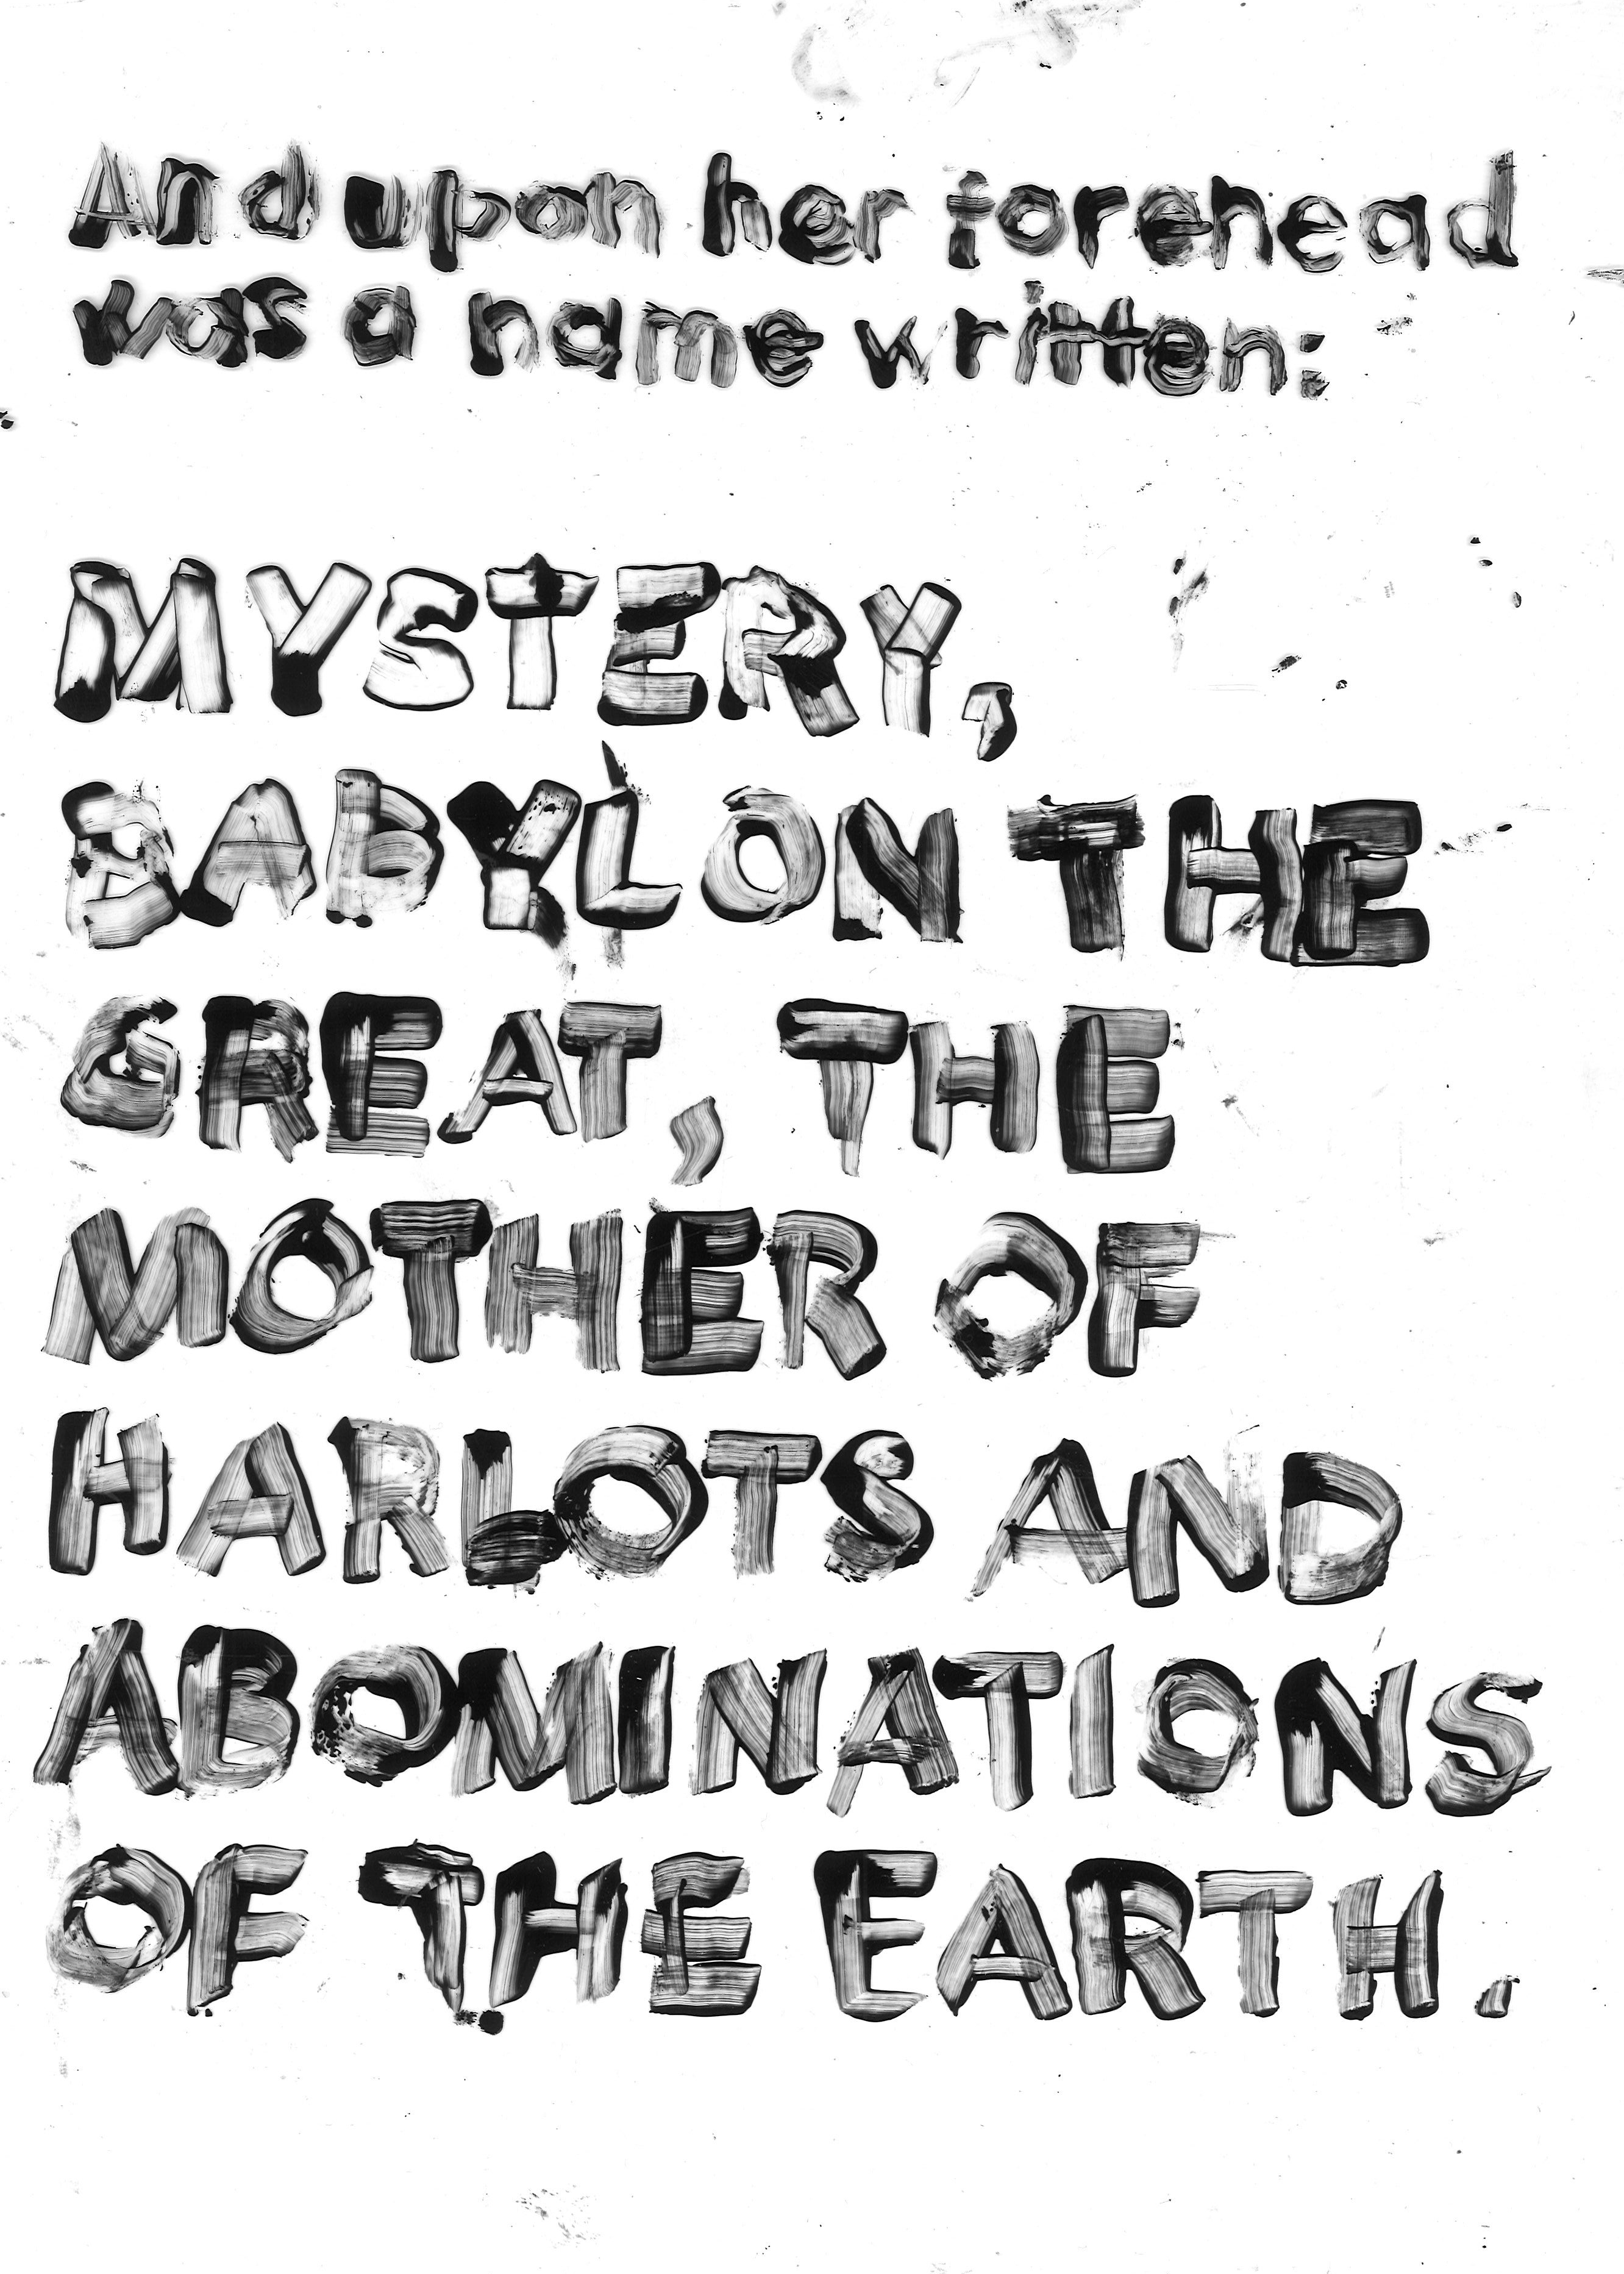 And upon her forehead
was a name written:
MYSTERY,
BABYLON THE
GREAT, THE
MOTHER OF
HARLOTS AND
ABOMINATIONS
OF THE EARTH.